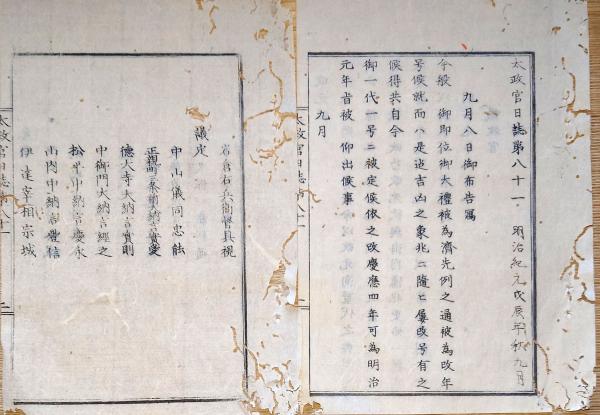 太政官日誌第八十一
明治紀元戊辰年秋九月
九月八日御布告寫
今般 御即位御大禮被為濟先例之通被為改年
号候就而ハ是迄吉凶之象兆ニ隨ヒ屢改号有之
候得共自今
御一代一号ニ被定候依之改慶應四年可為明治
元年旨被 仰出候事
九月
太政官日誌第八十一
岩倉右兵衛督具視
議定
中山儀同忠能
正親町三条大納言實愛
德大寺大納言實則
中御門大納言經之
松平中納言慶永
山内中納言豊信
伊達宰相宗城
太政官日誌第八十一
二